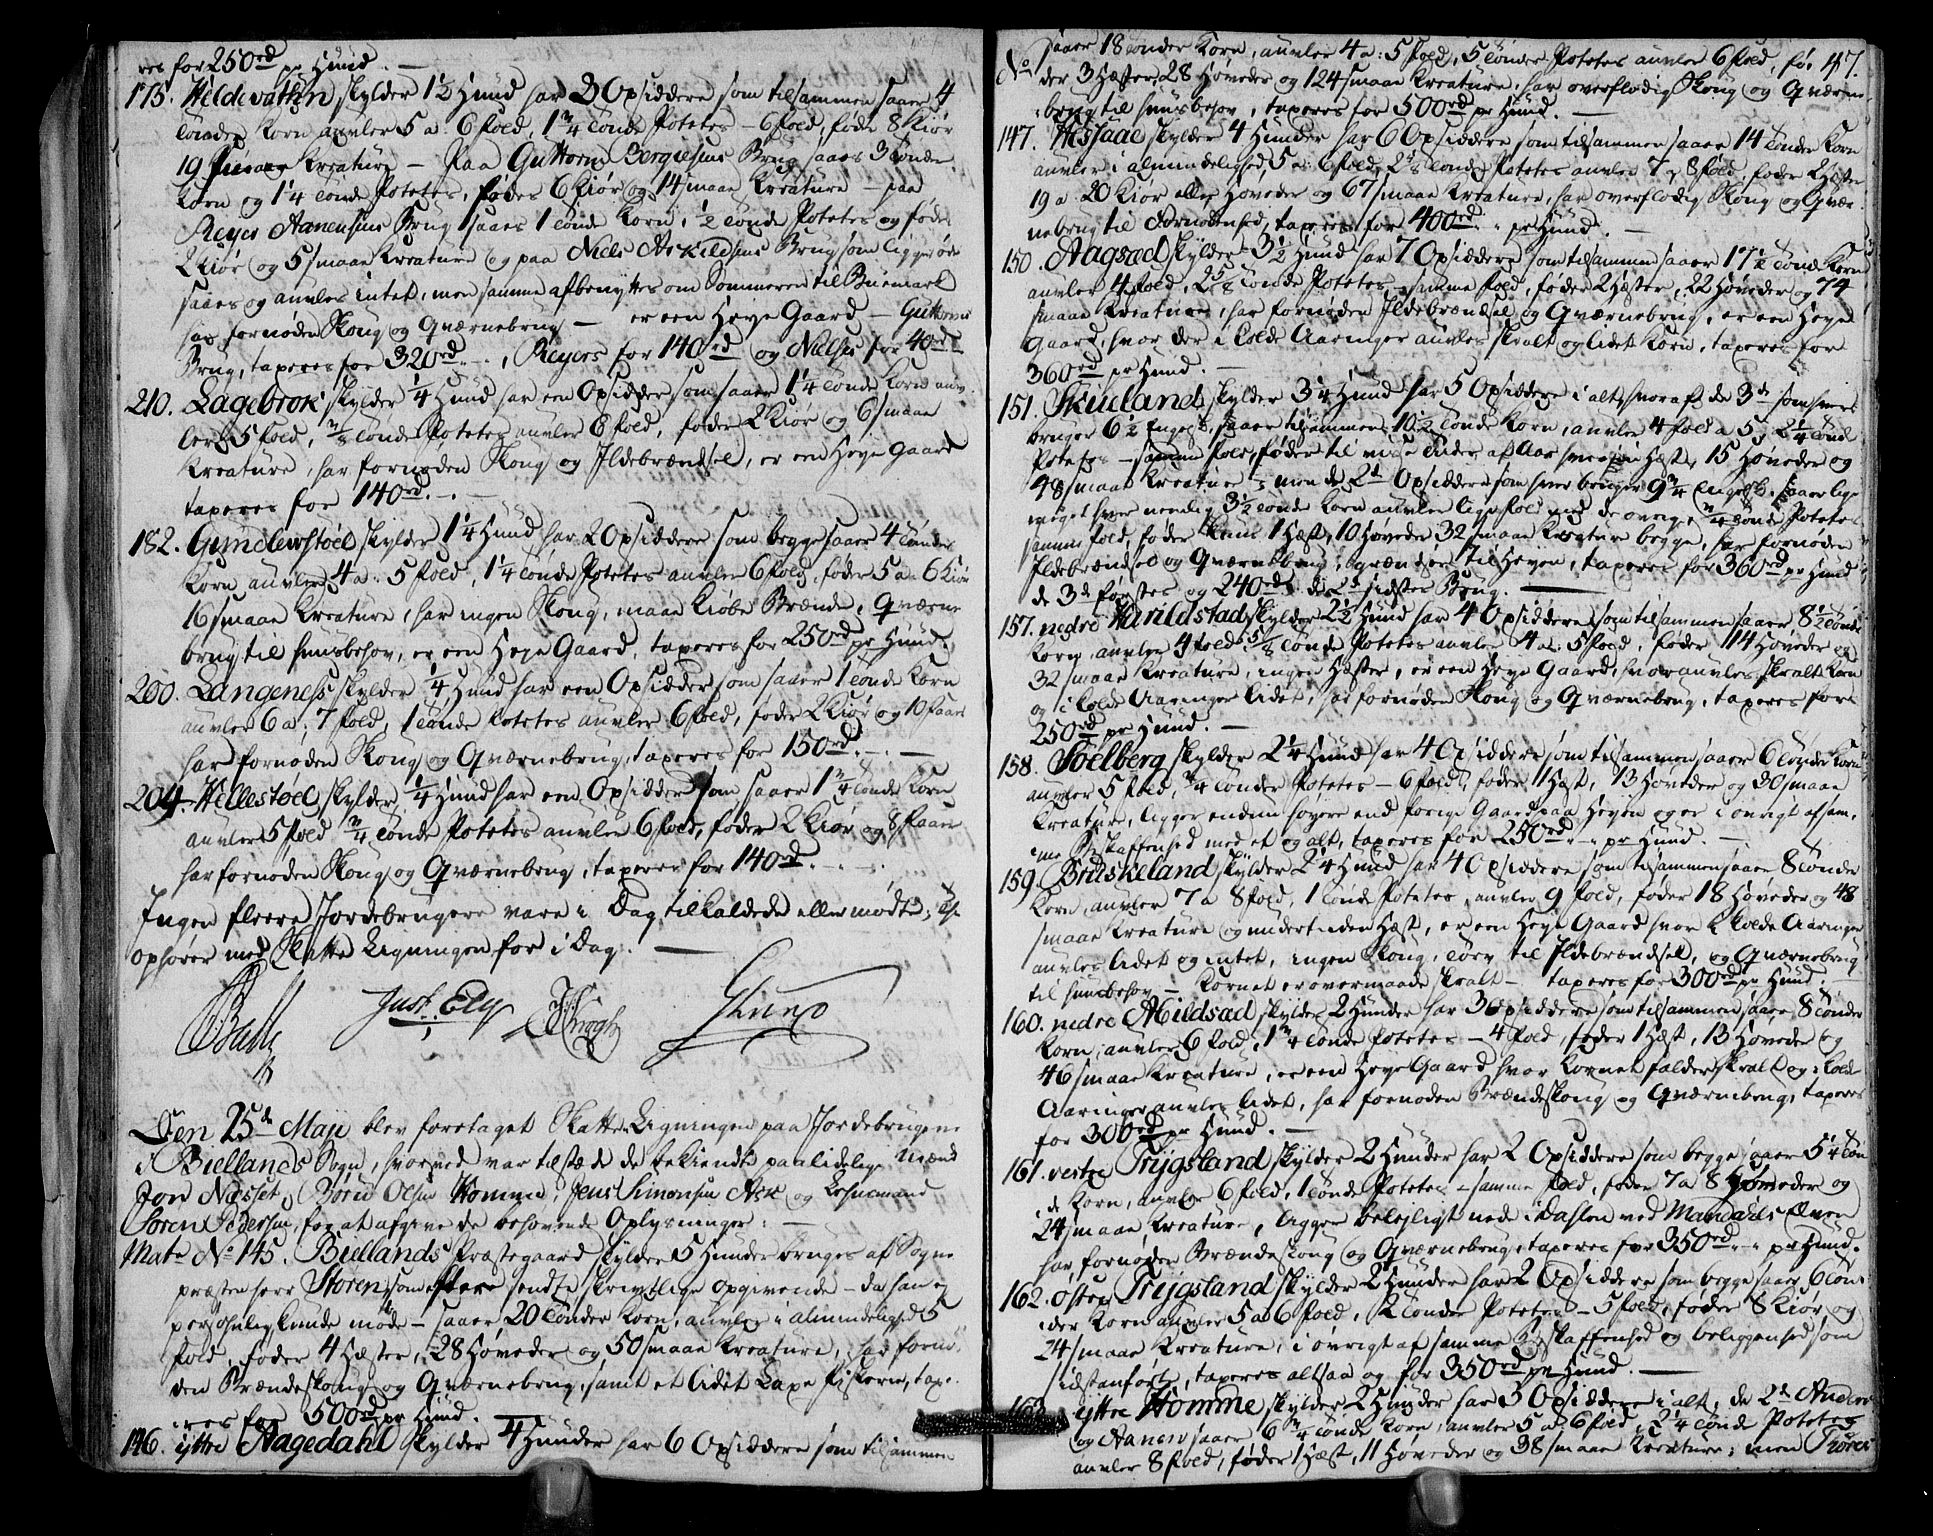 res for 250rd pr Hund. —
175. Heldevatten skylder 1½ Hund har 3 Opsiddere som tilsammen saaer 4
Tønder Korn auvler 5 a 6 fold, 1¾ Tønde Potetes – 6 fold, føder 8 Kiør
19 smaae Kreature – Paa Guttorm Bergiesens Brug saaes 3 Tønde
Korn og 1¼ Tønde Potetes, fødes 6 Kiør og 14 smaae Kreature – paa
Reyer Aanensens Brug saaes 1 Tønde Korn, ½ Tønde Potetes og fødes
2 Kiør og 5 smaae Kreature og paa Niels Askildsens Brug som ligger øde
saaes og auvles intet, men samme afbenyttes om Sommeren til Buemark
har fornøden Skoug og Qværnebrug – er een Heye Gaard – Guttorms
Brug, taxeres for 320rd, Reyers for 140rd og Nielses for 40rd
210. Lagebrok skylder ¼ Hund har een Opsidder som saaer 1¼ Tønde Korn auv-
ler 5 fold, Tønde Potetes auvler 6 fold, føder 2 Kiør og 6 smaae
Kreature, har fornøden Skoug og Ildebrændsel, er een Heye Gaard
taxeres for 140rd. —
182. Gundersstøel skylder 1¼ Hund har 2 Opsiddere som begge saaer 4 Tønder
Korn auvler 4 a 5 fold, 1¼ Tønde Potetes auvler 6 fold, føder 5 a 6 Kiør
16 smaae Kreature, har ingen Skoug, maae Kiøbe Brænde, Qværne
brug til Huusbehov, er een Heye Gaard, taxeres for 250rd pr Hund.
200. Langeness skylder ¼ Hund har een Opsidder som saaer 1 Tønde Korn
auvler 6 a 7 fold, 1 Tønde Potetes auvler 6 fold, føder 2 Kiør og 10 Faar
har fornøden Skoug og Qværnebrug, taxeres for 150rd. —
204. Hellestøel skylder ¼ Hund har een Opsidder som saaer 1¾ Tønde Korn
auvler 5 fold ¾ Tønde Potetes auvler 6 fold, føder 2 Kiør og 8 Faar
har fornøden Skoug og Qværnebrug, taxeres for 140rd.
Ingen fleere Jordebrugere vare i Dag tilkaldede eller mødte,
ophører med Skatte Ligningen for i Dag. —
Just Ely
Den 25de Maji blev foretaget Skatte Ligningen paa Jordebrugene
i Biellands Sogn, hvorved var tilstæde de bekiendte paalidelige Mænd
Jon Næsset, Børu Olsen Homme, Jens Simonsen Ask og Lehnsmand
Søren Pedersen, for at afgive de behøvende Oplysninger: —
Matr No 145. Biellands Præstegaard skylder 5 Hunder bruges af Sogne
præsten herr Støren, som efter sendte skrivtlige opgivende – da han ej
personlig kunde møde – saaer 20 Tønder Korn, auvler i almindelighed 5
fold, føder 4 Hæster, 28 Høveder og 50 smaae Kreature, har fornø-
den Brændeskoug og Qværnebrug, samt et lidet Laxe Fiskerie, taxe-
res for 500rd pr Hund.
146. ytre Aagedahl skylder 4 Hunder har 6 Opsiddere som tilsammen
No saaer 18 Tønder Korn, auvler 4 a 5 fold, 5 Tønder Potetes auvler 6 fold, fø- 47.
der 3 Hæster, 28 Høveder og 124 smaae Kreature, har overflødig Skoug og Qværne-
brug til Huusbehov, taxeres for 500rd pr Hund.
147. skylder 4 Hunder har 6 Opsiddere som tilsammen saaer 14 Tønder Korn
auvler i almindelighed 5 a 6 fold, Tønde Potetes auvler 7 a 8 fold, føder 2 Hæster
19 a 20 Kiør eller Høveder og 67 smaae Kreature, har overflødig Skoug og Qvær-
nebrug til Fornødenhed, taxeres for 400rd pr Hund. —
150. Aagsæd skylder 3½ Hund har 7 Opsiddere som tilsammen saaer 17½ Tønde Korn
auvler 4 fold, 2⅝ Tønde Potetes – samme fold, føder 2 Hæster, 22 Høveder og 74
smaae Kreature, har fornøden Ildebrændsel og Qværnebrug, er een Heye
Gaard, hvor der i kolde Aaringer auvles skralt og lidet Korn, taxeres for
360rd pr Hund. —
151. Skueland skylder 3¼ Hund har 5 Opsiddere i alt, hvoraf de 3de som hver
bruger 6½ Engels. saaer tilsammen 10½ Tønde Korn, auvler 4 fold a 5, 2¼ Tønde
Potetes – samme fold, føder til visse Tider af Aar hver sin Hæst, 15 Høveder og
48 smaae Kreature – men de 2de Opsiddere som hver bruger 9¾ Engels. saaer lige
meget hver nemlig 3½ Tønde Korn auvler lige fold med de øvrige, ¾ Tønde Potetes
samme fold, føder kuns 1 Hæst, 10 Høveder 32 smaae Kreature begge, har fornøden
Ildebrændsel og Qværnebrug, grændser til Heyen, taxeres for 360rd pr Hund
de 3de første og 240rd de 2de sidstes Brug. —
157. nedre Harildstad skylder 2½ Hund har 4 Opsiddere som tilsammen saaer 8½ Tønde
Korn, auvler 4 fold, ⅝ Tønde Potetes auvler 4 a 5 fold, føder 14 Høveder og
32 smaae Kreature, ingen Hæster, er een Heye Gaard, hvor auvles skralt Korn
og i kolde Aaringer lidet, har fornøden Skoug og Qværnebrug, taxeres for
250rd pr Hund. —
158. Soelberg skylder 2¼ Hund har 4 Opsiddere som tilsammen saaer 6 Tønder Korn
auvler 5 fold, ¾ Tønder Potetes – 6 fold, føder 1 Hæst, 13 Høveder og 30 smaae
Kreature, ligger endnu høyere end forige Gaard paa Heyen og er i øvrigt af sam-
me Beskaffenhed med et og alt, taxeres for 250rd pr Hund. —
159. Bruskeland skylder 2¼ Hund har 4 Opsiddere som tilsammen saaer 8 Tønder
Korn, auvler 7 a 8 fold, 1 Tønde Potetes auvler 9 fold, føder 18 Høveder og 48
smaae Kreature og undertiden Hæst, er een Heye Gaard hvor i kolde Aaringer
auvles lidet og intet, ingen Skoug, Torv til Ildebrændsel, og Qværnebrug
til Huusbehov – Kornet er overmaade skralt – taxeres for 300rd pr Hund. —
160. nedre Mildsad skylder 2 Hunder har 3 Opsiddere som tilsammen saaer 8 Tønder
Korn, auvler 6 fold, 1¾ Tønde Potetes – 4 fold, føder 1 Hæst, 13 Høveder og
46 smaae Kreature, er een Heye Gaard hvor Kornet falder skralt og i kolde
Aaringer auvles lidet, har fornøden Brændeskoug og Qværnebrug, taxeres
for 300rd pr Hund. —
161. vestre Trygsland skylder 2 Hunder har 2 Opsiddere som begge saaer 5¼ Tøn-
de Korn, auvler 6 fold, 1 Tønde Potetes – samme fold, føder 7 a 8 Høveder og
24 smaae Kreature, ligger beleyligt nede i Dahlen ved Mandals Elven
har fornøden Brændeskoug og Qværnebrug, taxeres for 350rd pr Hund.
162. østre Trygsland skylder 2 Hunder har 2 Opsiddere som begge saaer 6 Tøn-
der Korn auvler 5 a 6 fold, 2 Tønder Potetes – 5 fold, føder 8 Kiør og
24 smaae Kreature, i øvrigt af samme Beskaffenhed og beliggenhed som
sidstanførte, taxeres altsaa og for 350rd pr Hund. —
163. yttre Homme skylder 2 Hunder har 3 Opsiddere i alt, de 2de Anders
og Aanen saaer 6¾ Tønde Korn, auvler 5 a 6 fold, 2¼ Tønde Potetes
auvler 8 fold, føder 1 Hæst, 11 Høveder og 38 smaae Kreature; men